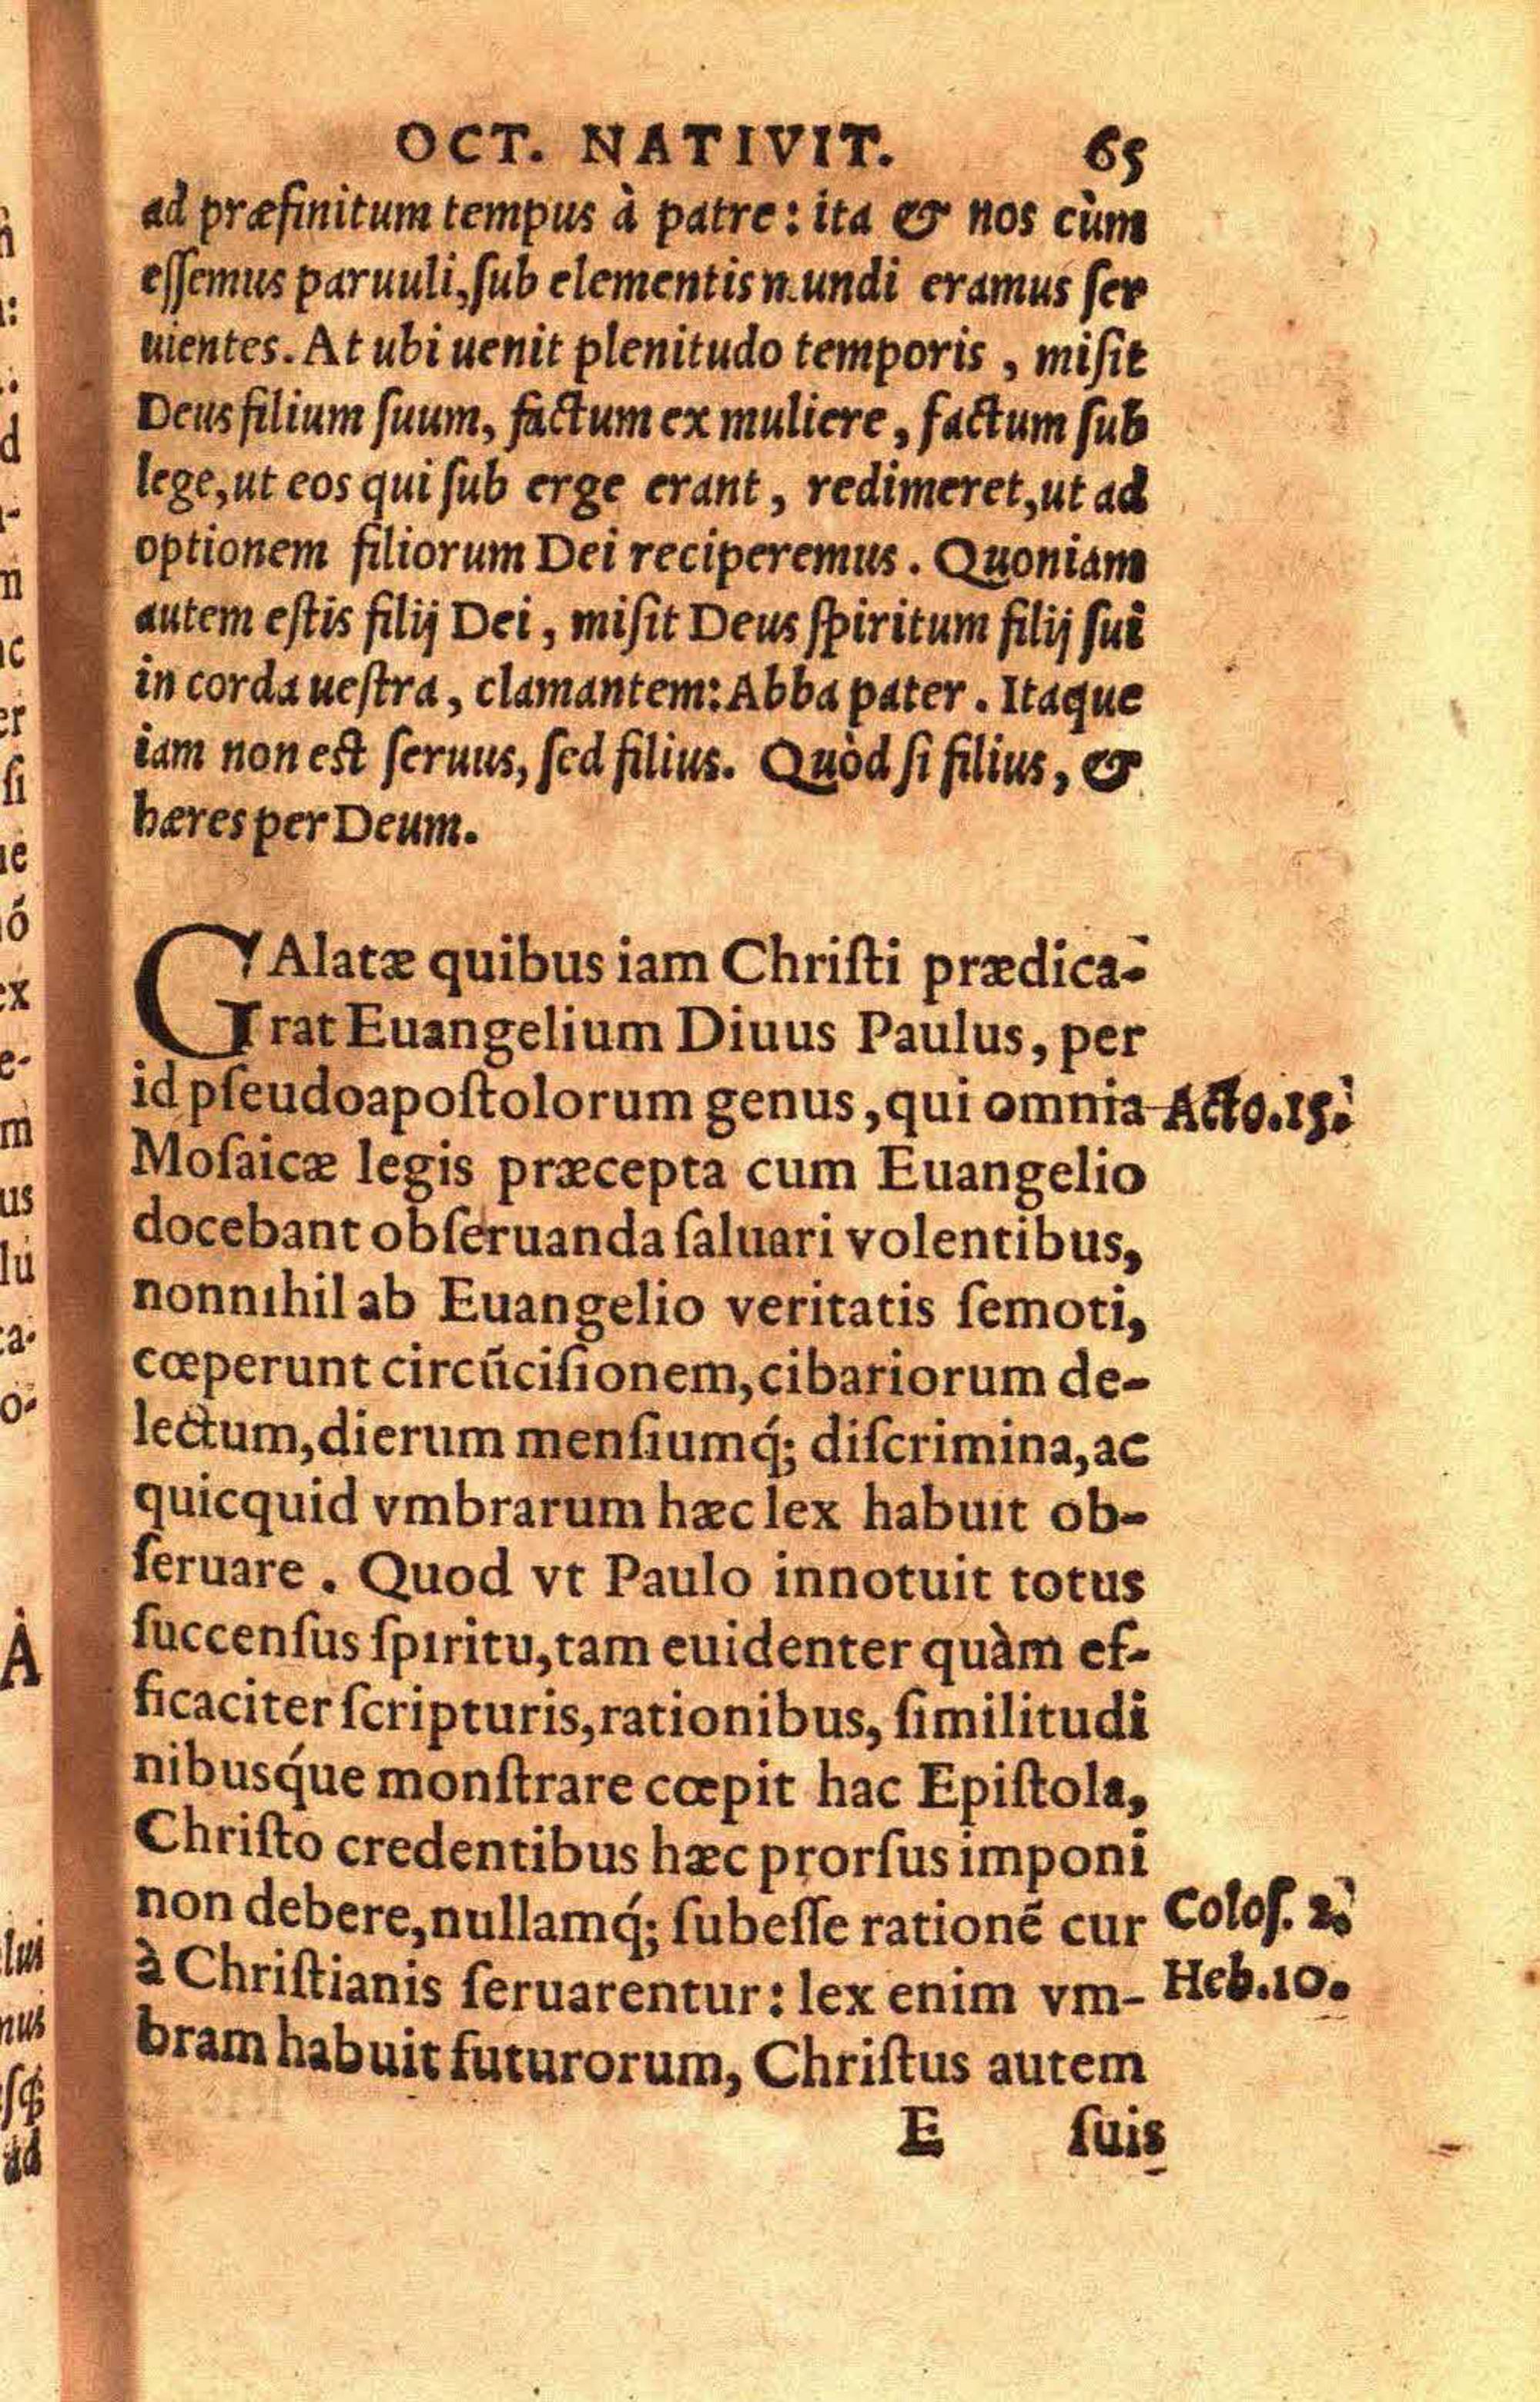 OCT. NATIVIT. 65
ad præfinitum tempus à patre: ita & nos cùm
eſſemus paruuli, ſub elementis mundi eramus ſer
uientes. At ubi uenit plenitudo temporis, miſit
Deus filium ſuum, factum ex muliere, factum ſub
lege, ut eos qui ſub erge erant, redimeret, ut ad
optionem filiorum Dei reciperemus. Quoniam
autem eſtis filij Dei, miſit Deus ſpiritum filij ſui
in corda ueſtra, clamantem: Abba pater. Itaque
iam non est ſeruus, ſed filius. Quòd ſi filius, &
hæres per Deum.
GAlatæ quibus iam Chriſti prædica-
rat Euangelium Diuus Paulus, per
id pſeudoapoſtolorum genus, qui omnia Acto.15.
Moſaicæ legis præcepta cum Euangelio
docebant obſeruanda ſaluari volentibus,
nonnihil ab Euangelio veritatis ſemoti,
cœperunt circũciſionem, cibariorum de-
lectum, dierum menſiumq́; diſcrimina, ac
quicquid vmbrarum hæc lex habuit ob-
ſeruare. Quod vt Paulo innotuit totus
ſuccenſus ſpiritu, tam euidenter quàm ef-
ficaciter ſcripturis, rationibus, ſimilitudi
nibusq́ue monſtrare cœpit hac Epiſtola,
Chriſto credentibus hæc prorſus imponi
non debere, nullamq́; ſubeſſe rationẽ cur Coloſ. 2.
à Chriſtianis ſeruarentur: lex enim vm- Heb.10.
bram habuit futurorum, Chriſtus autem
E ſuis